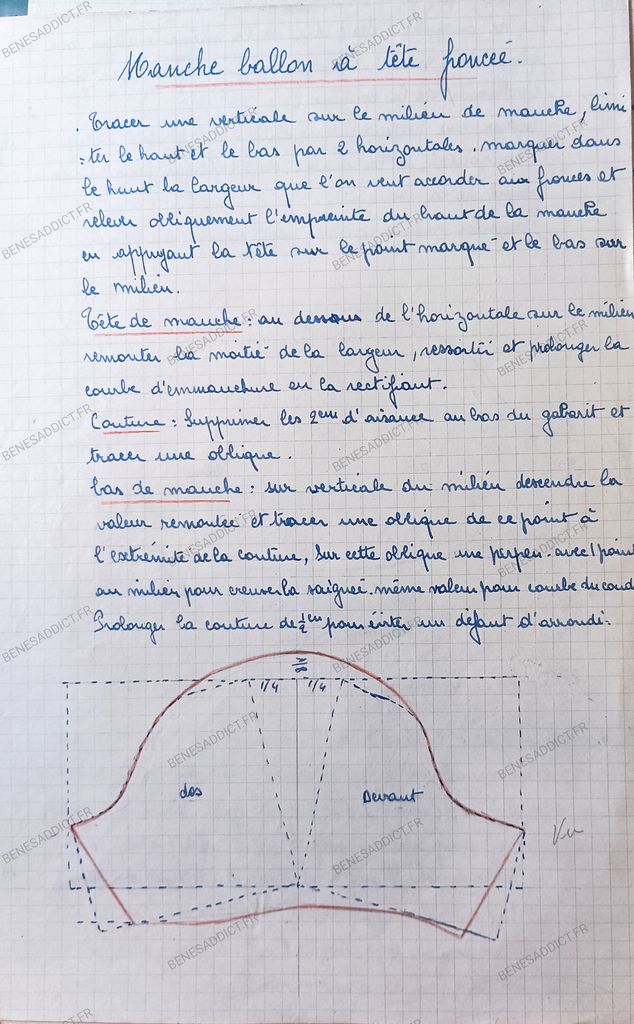 Manche ballon à tête froncée.
. Tracer une verticale sur le milieu de manche, limi
-ter le haut et le bas par 2 horizontales. marquer dans
le haut la largeur que l'on veut accorder aux fronces et
relever obliquement l'empreinte du haut de la manche
en appuyant la tête sur le point marqué et le bas sur
le milieu.
Tête de manche : au dessous de l'horizontale sur le milieu
remonter la moitié de la largeur, ressortir et prolonger la
courbe d'emmanchure en la rectifiant.
Couture : Supprimer les 2cm d'aisance au bas du gabarit et
tracer une oblique.
bas de manche : sur verticale du milieu descendre la
valeur remontée et tracer une oblique de ce point à
l'extrémité de la couture, sur cette oblique une perpen. avec 1 point
au milieu pour creuser la saignée. même valeur pour courbe du coud
Prolonger la couture de ½ cm pour éviter un défaut d'arrondi.
1/4 1/4
dos Devant
Vu
BENESADDICT.FR